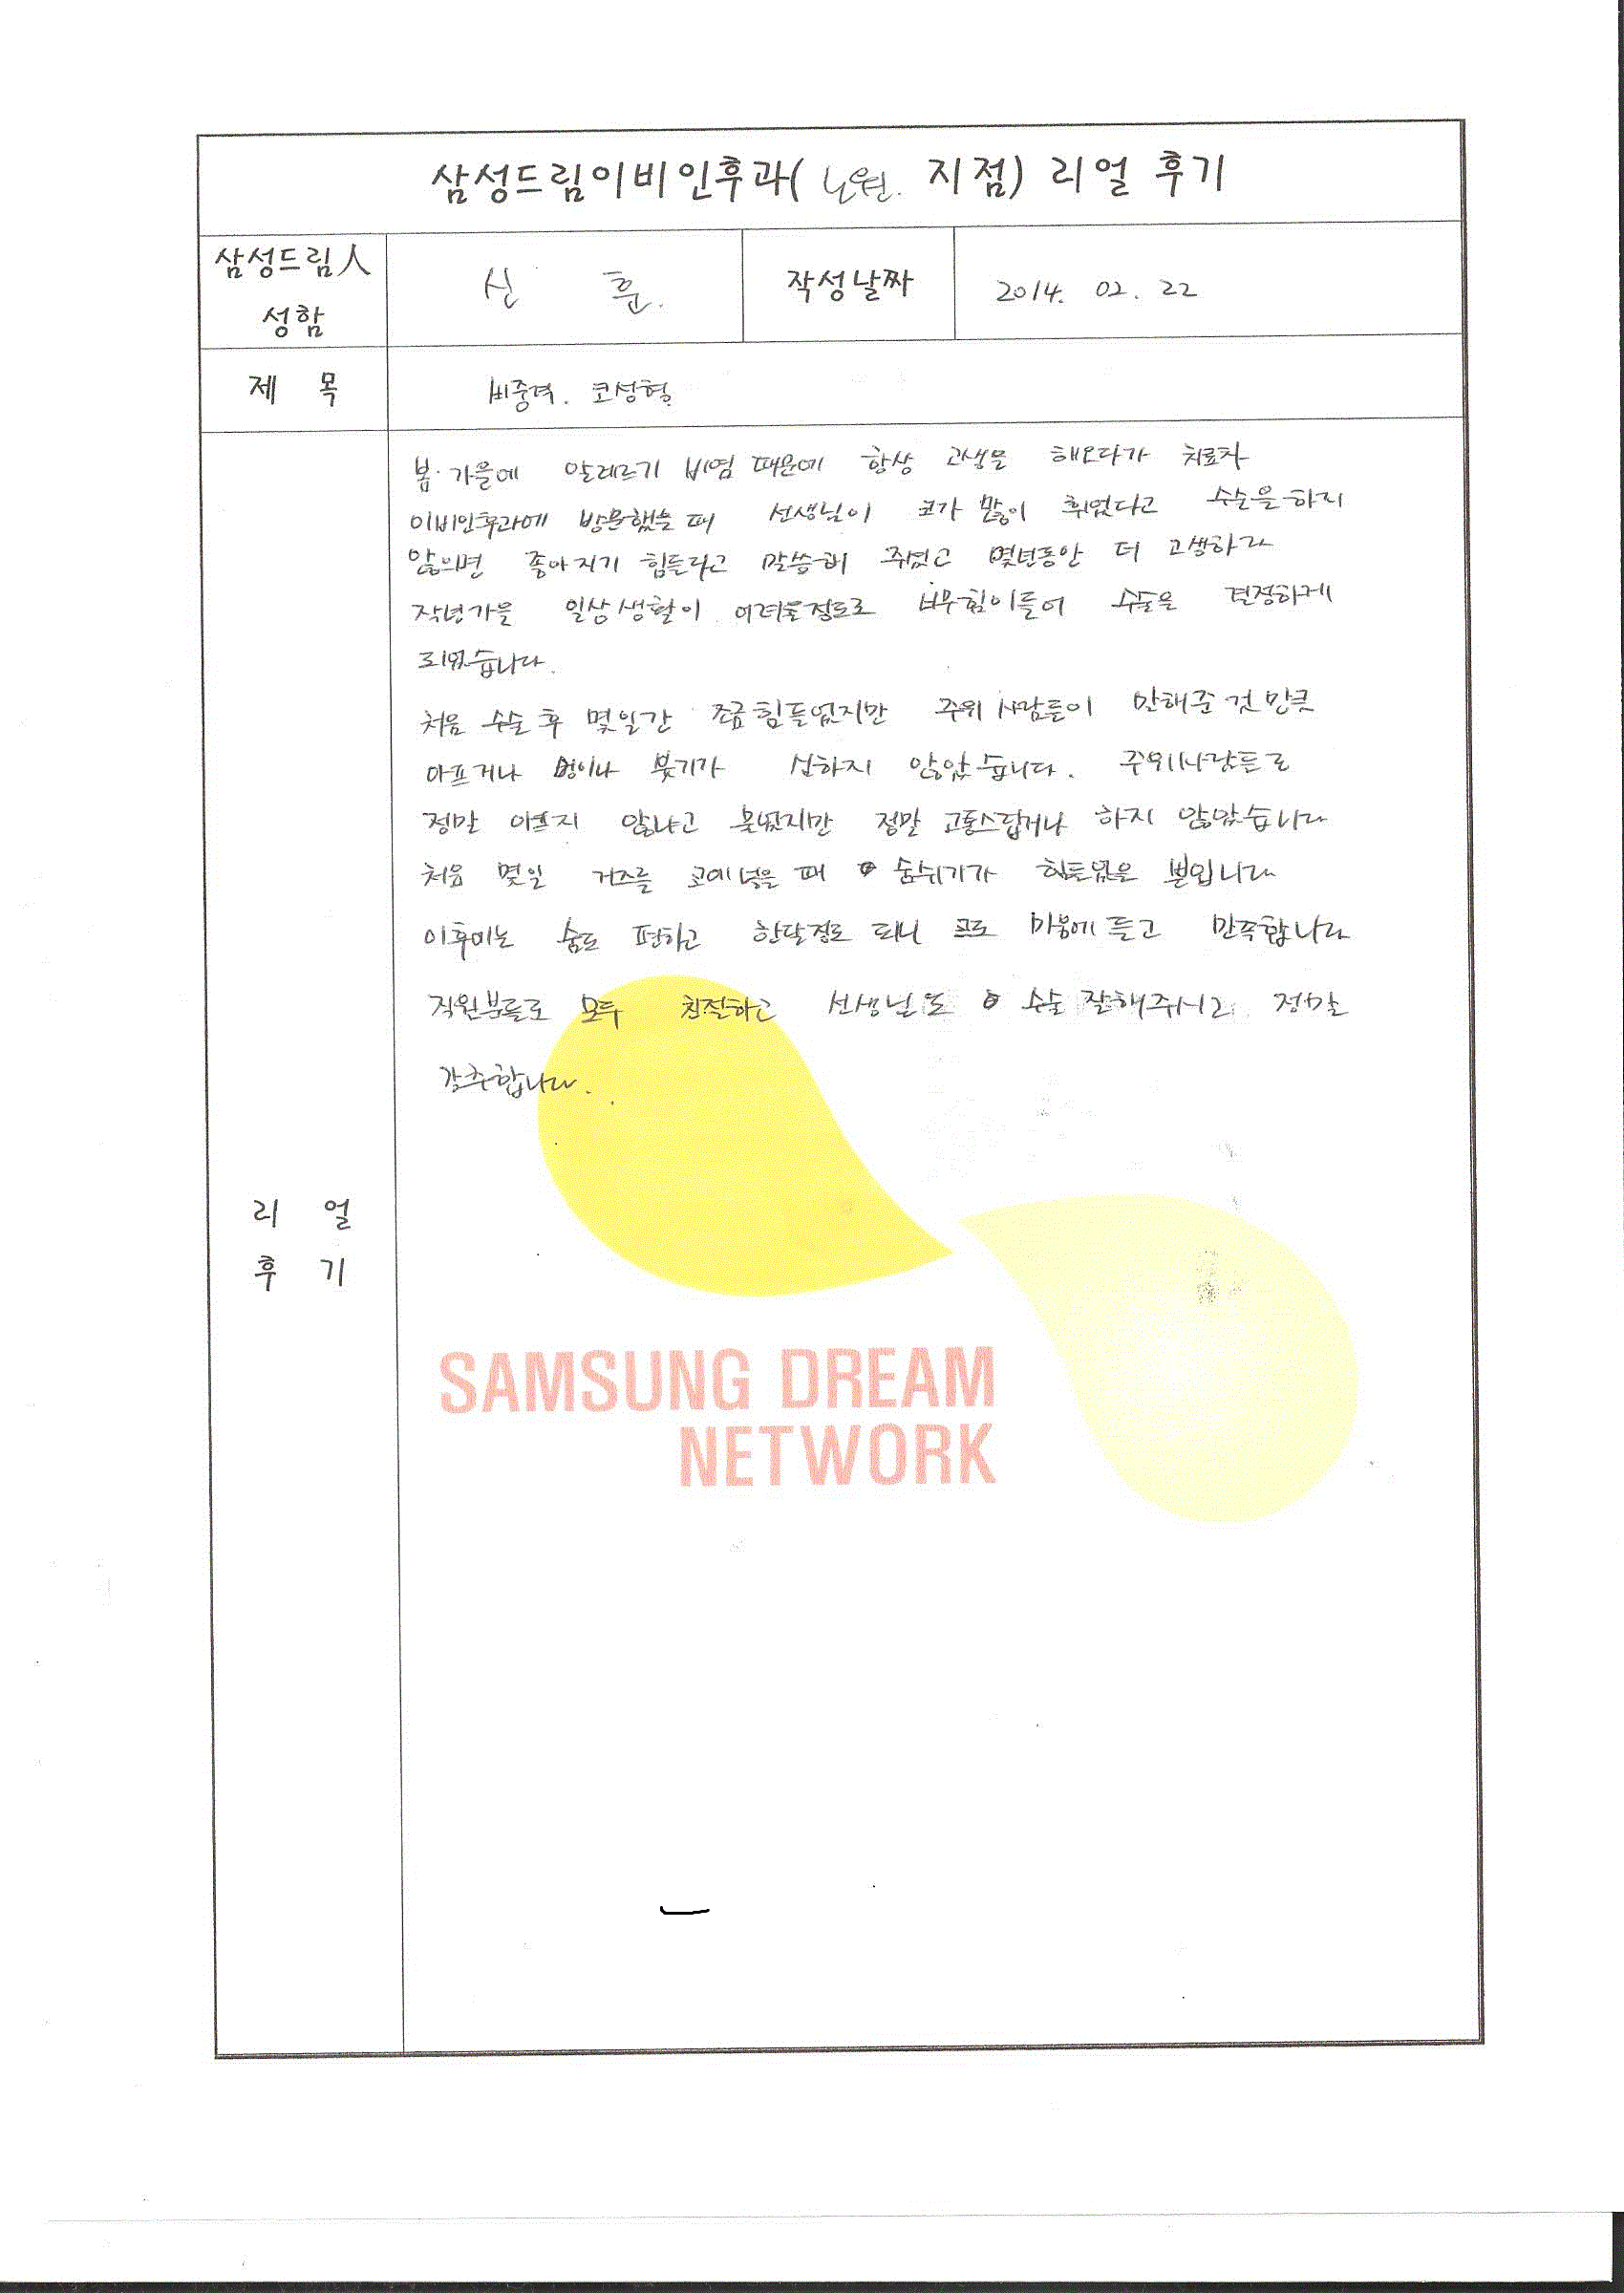 삼성드림이비인후과( 노원. 지점) 리얼 후기
삼성드림人
성함
신 훈.
작성날짜
2014. 02. 22
제 목
비중격. 코성형.
봄·가을에 알레르기 비염 때문에 항상 고생을 해오다가 치료차
이비인후과에 방문했을 때 선생님이 코가 많이 휘었다고 수술을 하지
않으면 좋아지기 힘들다고 말씀해 주셨고 몇년동안 더 고생하다
작년가을 일상생활이 어려울정도로 너무힘이들어 수술을 결정하게
되었습니다.
처음 수술 후 몇일간 조금힘들었지만 주위 사람들이 말해준 것 만큼
아프거나 멍이나 붓기가 심하지 않았습니다. 주위사람들도
정말 아프지 않냐고 묻었지만 정말 고통스럽거나 하지 않았습니다
처음 몇일 거즈를 코에 넣을 때 숨쉬기가 힘들었을 뿐입니다
이후에는 숨도 편하고 한달정도 되니 코도 마음에 들고 만족합니다
직원분들도 모두 친절하고 선생님도 수술 잘해주시고 정말
강추합니다.
리 얼
후 기
SAMSUNG DREAM
NETWORK